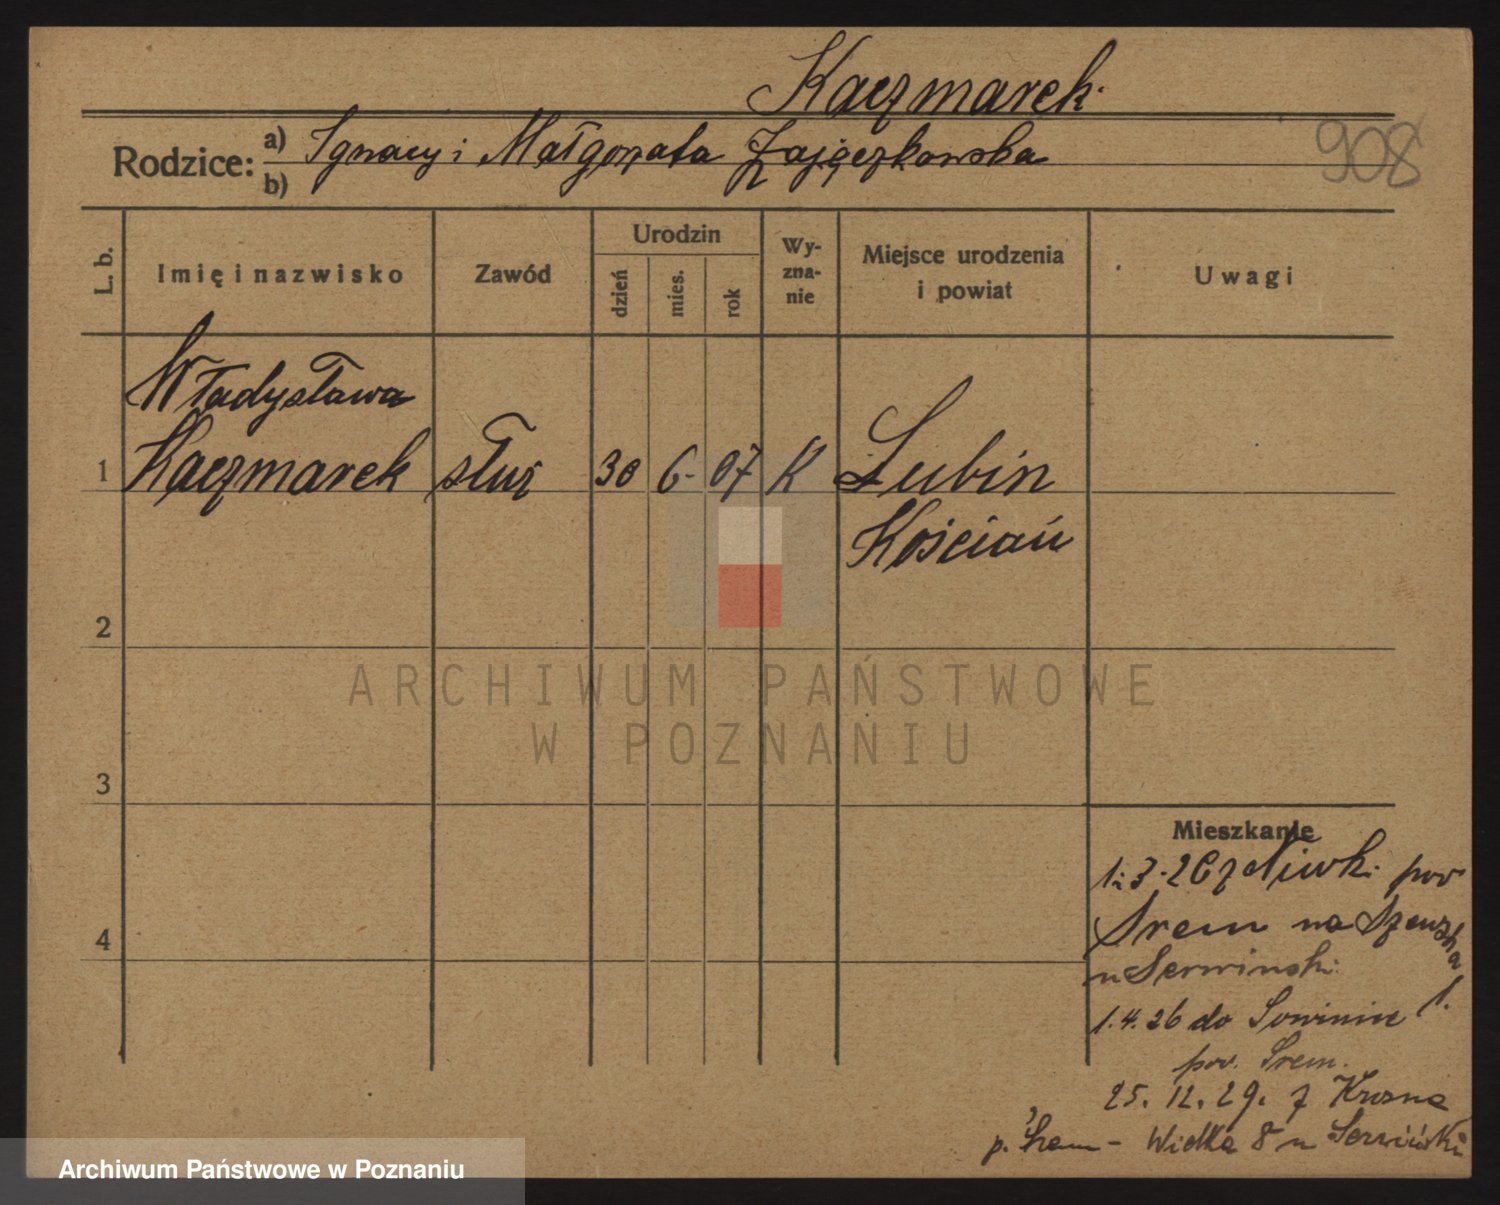 Kaczmarek
908
Rodzice: a) Ignacy i Małgorzata Zajączkowska
b)
L. b.
Imię i nazwisko
Zawód
Urodzin
dzień
mies.
rok
Wy-
zna-
nie
Miejsce urodzenia
i powiat
Uwagi
Władysława
1 Kaczmarek służ 30 6. 07 K Lubin
Kościań
2
3
4
ARCHIWUM PAŃSTWOWE
W POZNANIU
Mieszkanie
1.3.26 z Niwki pow
Srem na
u Serwinski
1.4.26 do Sowiniec
pow. Srem.
25. 12. 29. z Krosna
p. Srem - Wielka 8 u Serwiński
Archiwum Państwowe w Poznaniu